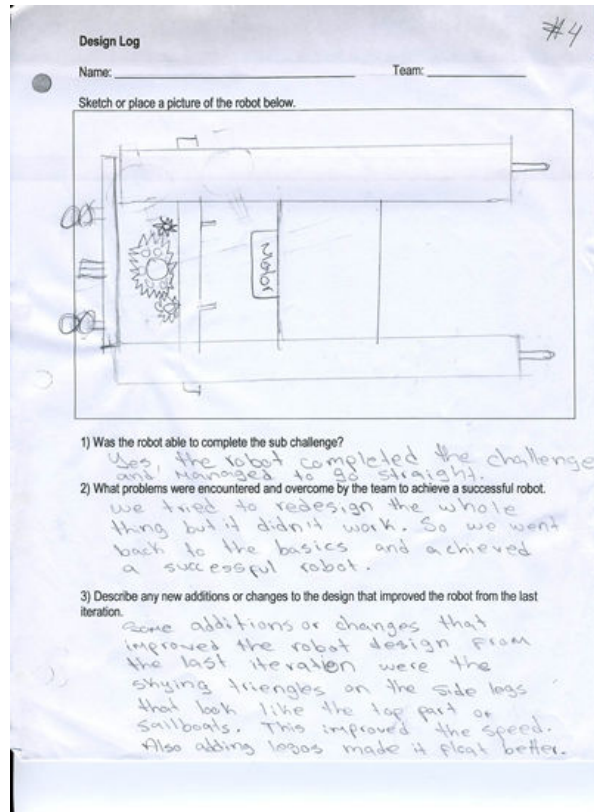 #4
Design Log
Name: Team:
Sketch or place a picture of the robot below.
Motor
1) Was the robot able to complete the sub challenge?
Yes, the robot completed the challenge
and managed to go straight.
2) What problems were encountered and overcome by the team to achieve a successful robot.
we tried to redesign the whole
thing but it didn't work. So we went
back to the basics and achieved
a successful robot.
3) Describe any new additions or changes to the design that improved the robot from the last
iteration.
Some additions or changes that
improved the robot design from
the last iteration were the
triengles on the side legs
that look like the top part of
sailboats. This improved the speed.
Also adding legos made it float better.